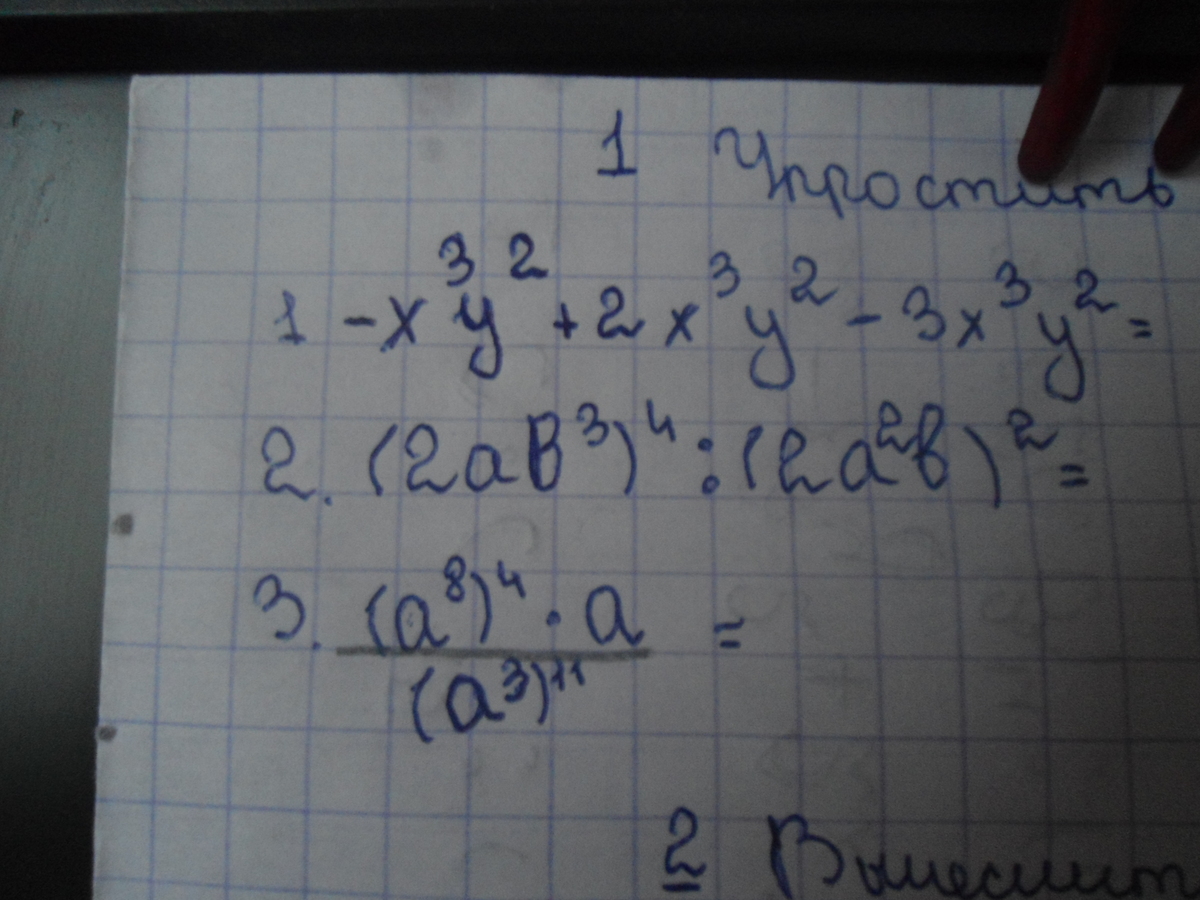 1 Упростить
1 -x³y² + 2x³y² - 3x³y² =
2. (2aв³)⁴ : (2a²в)² =
3. (a⁸)⁴ · a =
(a³)¹¹
2